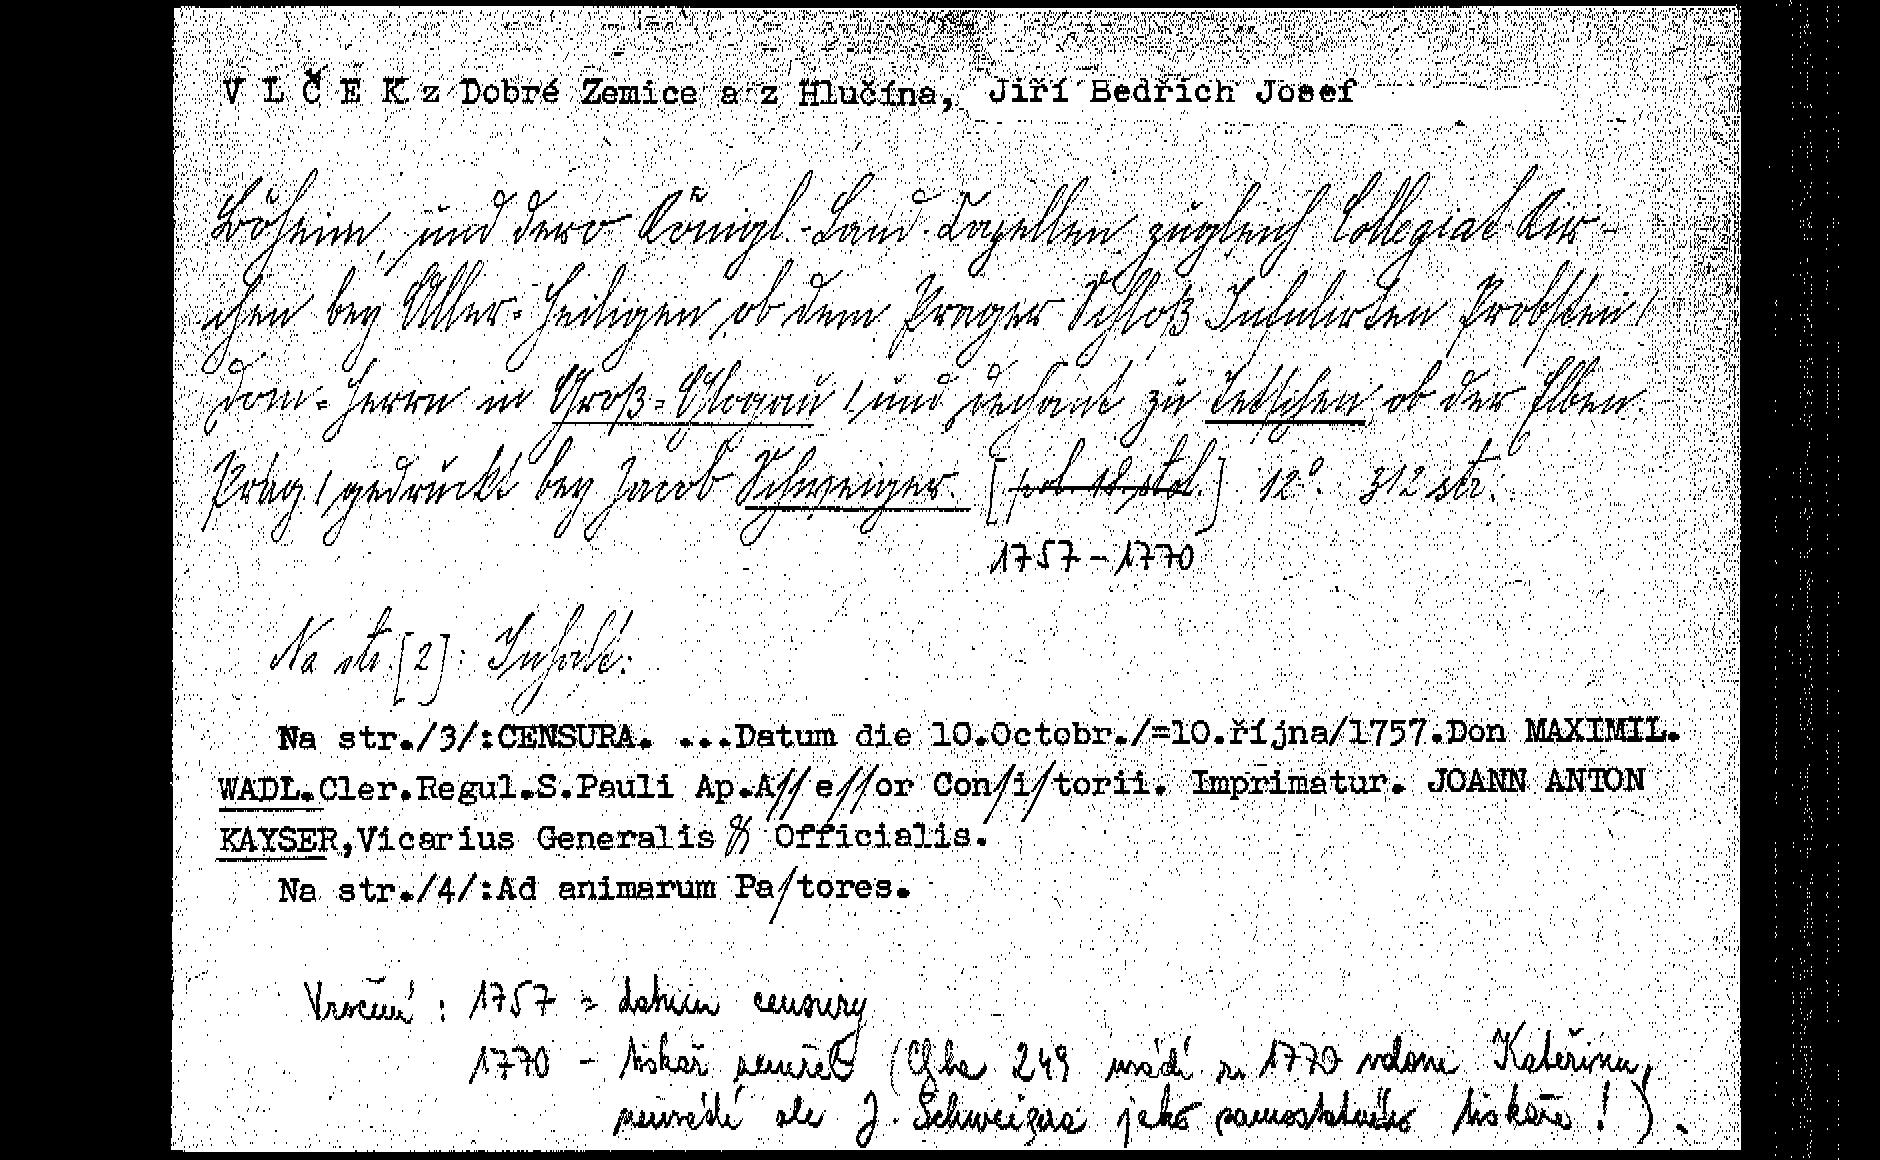 V L Č E K z Dobré Zemice a z Hlučína, Jiří Bedřich Josef
Böheim, und dero Königl.-Land-Capellen zugleich Collegiat-Kir-
chen bey Aller-Heiligen ob dem Prager Schloß Infulirten Probsten/
Dom-Herrn in Groß-Glogau / und Dechant zu Tetschen ob der Elben.
Prag / gedruckt bey Jacob Schweiger. [pol. 18. stol.] 12°. 312 str.
1757-1770
Na str. [2]: Inhalt:
Na str./3/:CENSURA. ...Datum die 10.Octobr./=10.října/1757.Don MAXIMIL.
WADL.Cler.Regul.S.Pauli Ap.Aſſeſſor Conſiſtorii. Imprimatur. JOANN ANTON
KAYSER,Vicarius Generalis & Officialis.
Na str./4/:Ad animarum Paſtores.
Vročení : 1757 = datum censury
1770 - tiskař zemřel (Chba 249 uvádí r. 1770 vdovu Kateřinu,
neuvádí ale J. Schweigra jako samostatného tiskaře!).